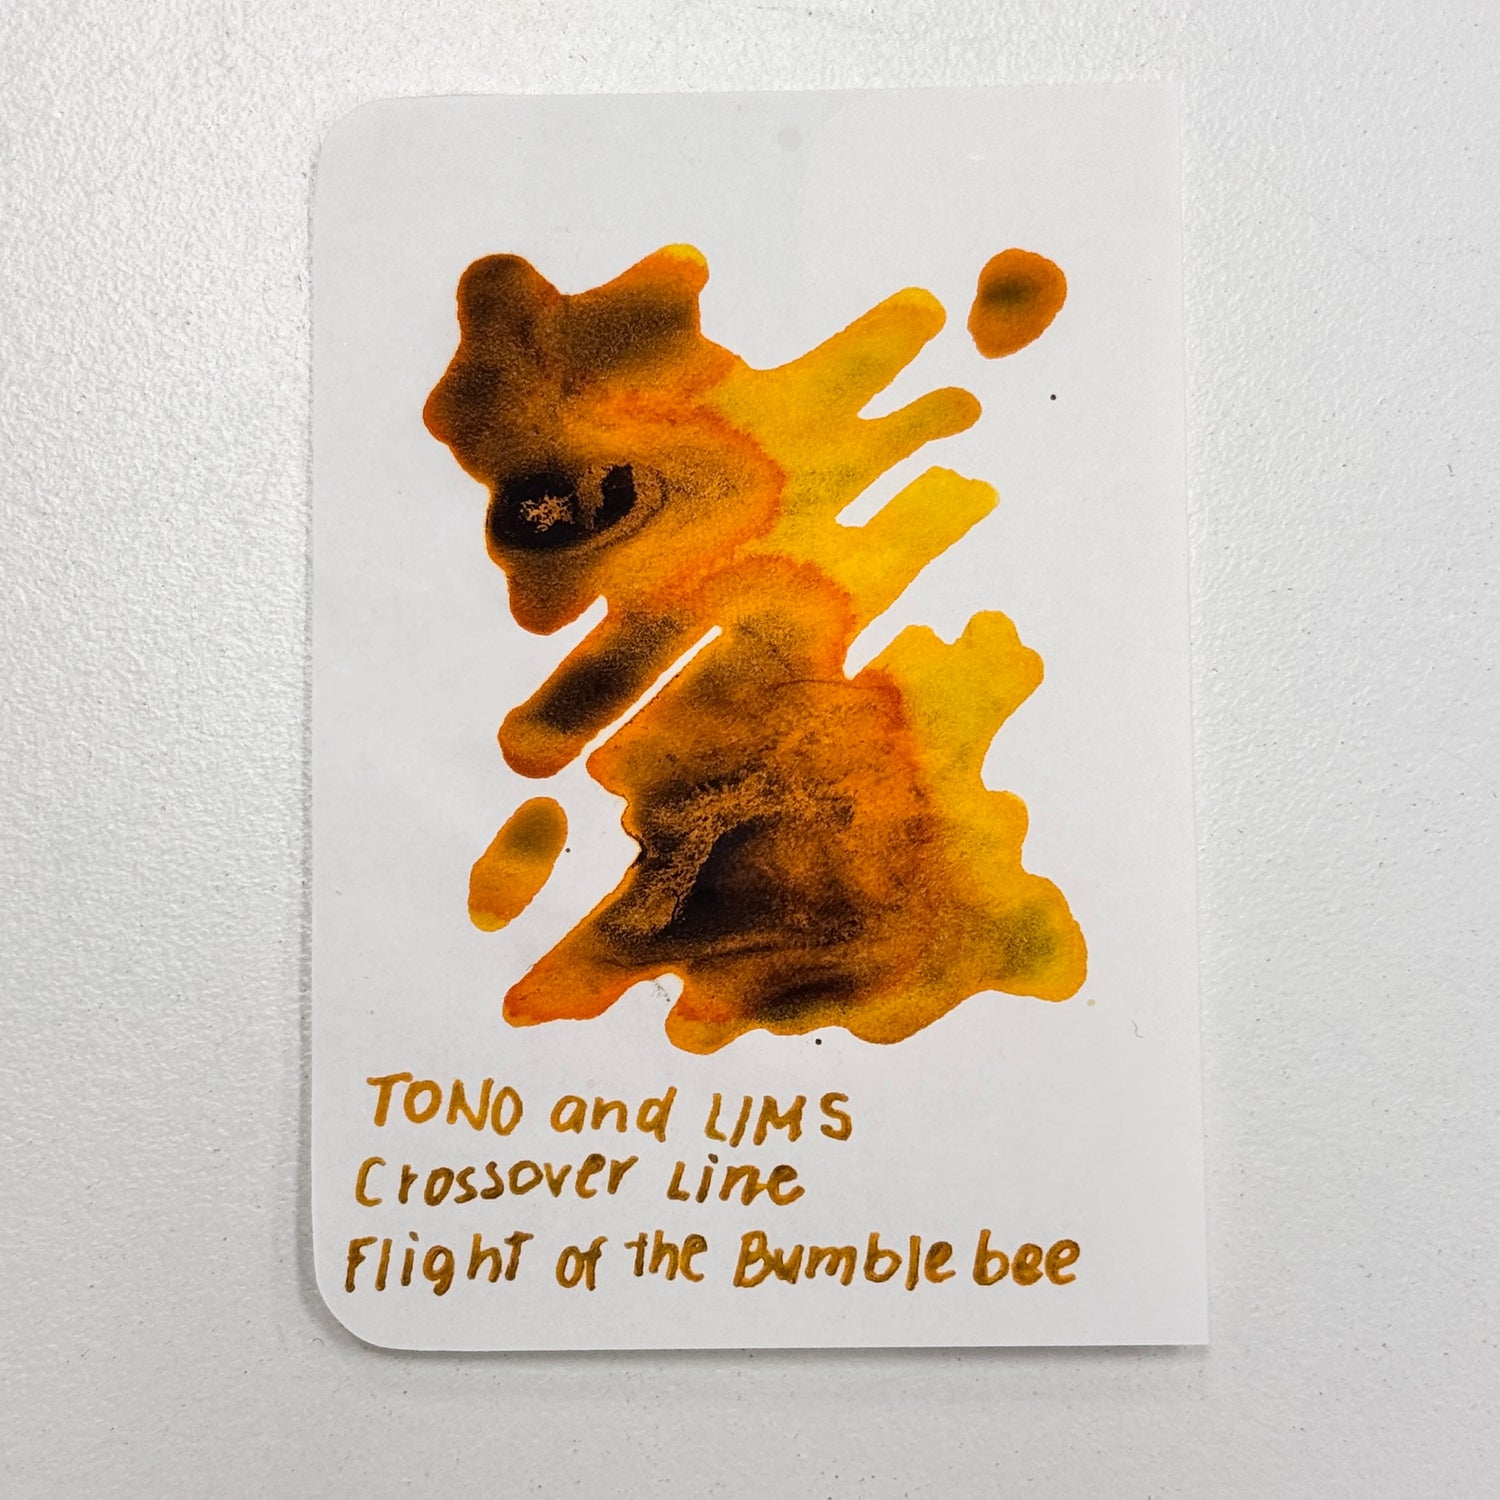 TONO and LIMS
Crossover Line
Flight of the Bumble bee